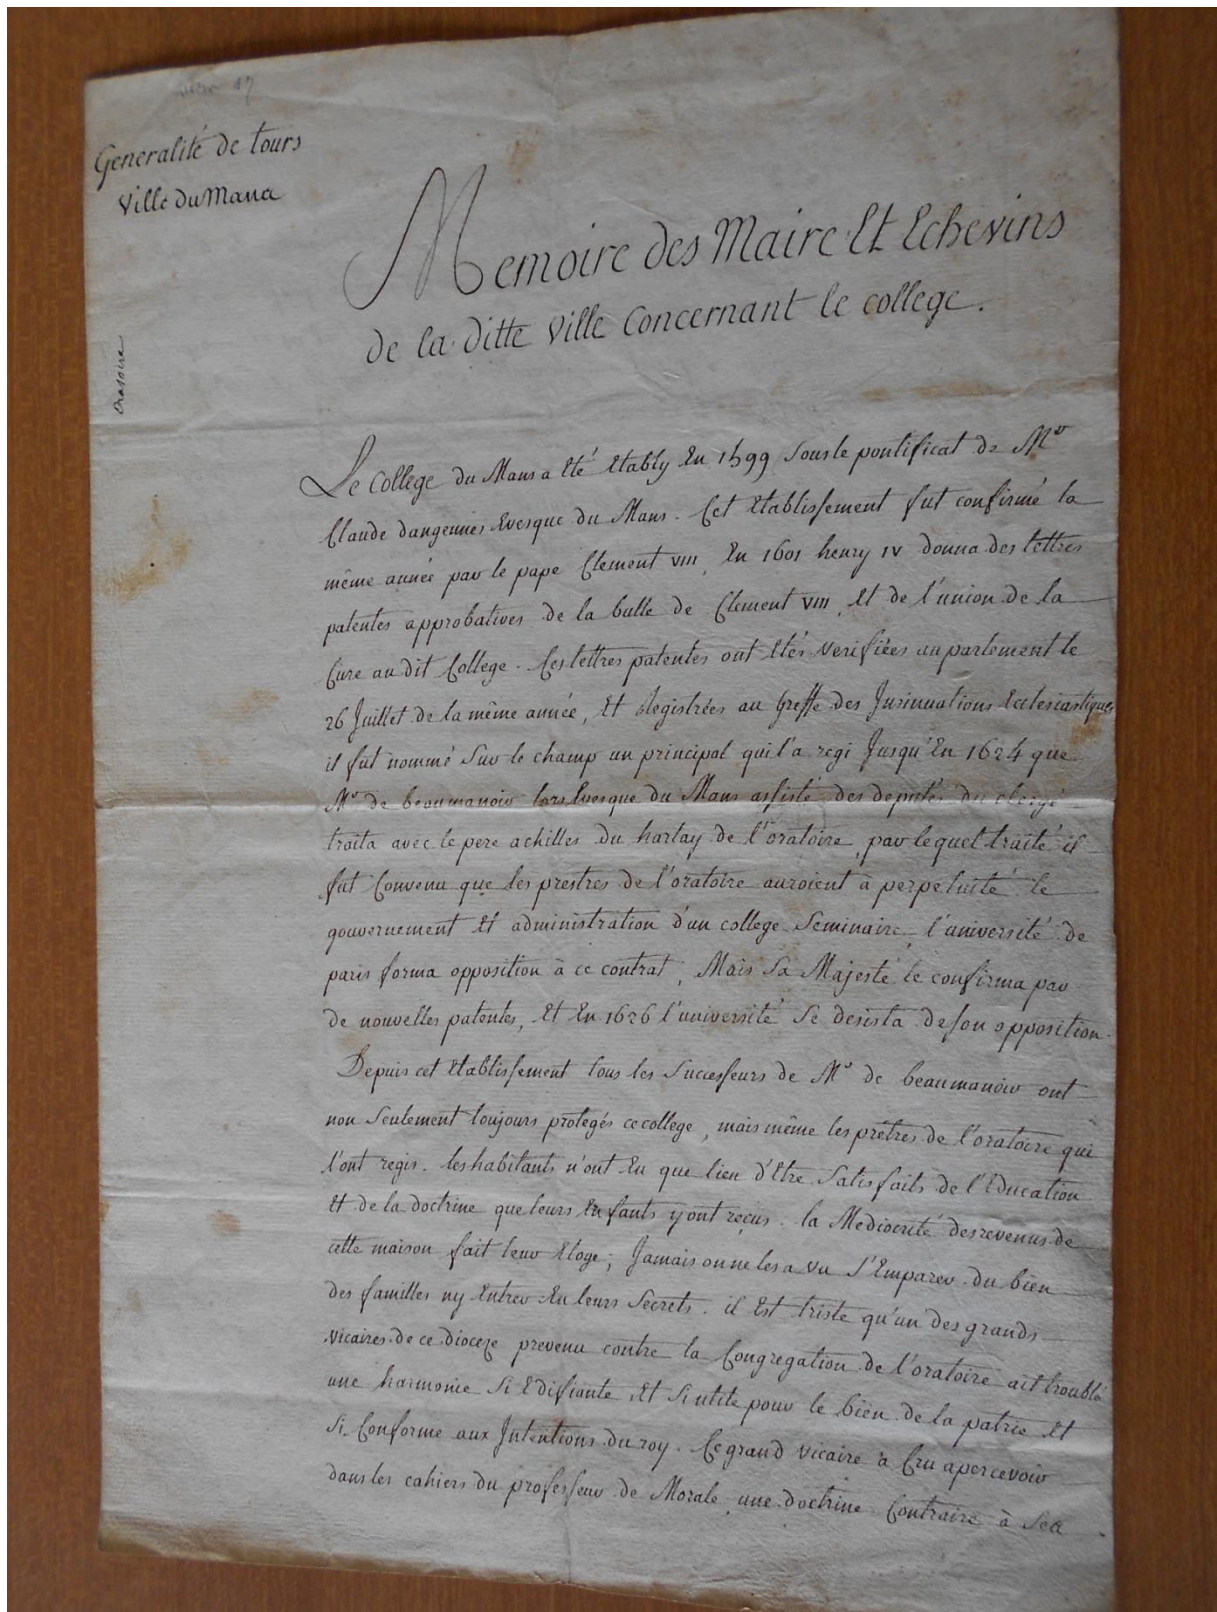 Generalité de tours
Ville du Mans
Memoire des Maire Et Echevins
de la ditte Ville Concernant le college.
Oratoire
Le College du Mans a Eté Etably En 1599 Sous le pontificat de Mr
Claude dangennes Evesque du Mans. Cet Etablissement fut confirmé la
même année par le pape Clement VIII, En 1601 henry IV donna des lettres
patentes approbatives de la bulle de Clement VIII, Et de l'union de la
Cure au dit College. Ces lettres patentes ont Etés verifiées au parlement le
26 Juillet de la même année, Et Registrées au Greffe des Insinuations Ecclesiastiques
il fut nommé Sur le champ un principal qui l'a regi Jusqu'En 1624 que
Mr de beaumanoir lors Evesque du Mans assisté des deputés du clergé
traita avec le pere achilles du harlay de l'oratoire, par lequel traité il
fut Convenu que les prestres de l'oratoire auroient à perpetuité le
gouvernement Et administration d'un college Seminaire, l'université de
paris forma opposition à ce contrat, Mais Sa Majesté le confirma par
de nouvelles patentes, Et En 1626 l'université Se desista de son opposition.
Depuis cet Etablissement tous les Successeurs de Mr de beaumanoir ont
non Seulement toujours protegés ce college, mais même les prêtres de l'oratoire qui
l'ont regis. les habitants n'ont Eu que lieu d'Etre Satisfaits de l'Education
Et de la doctrine que leurs Enfants y ont reçus. la Mediocrité des revenus de
cette maison fait leur Eloge; Jamais on ne les a vu S'Emparer du bien
des familles ny Entrer En leurs Secrets. il Est triste qu'un des grands
vicaires de ce dioceze prevenu contre la Congregation de l'oratoire ait troublé
une harmonie Si Edifiante Et Si utile pour le bien de la patrie Et
Si Conforme aux Intentions du roy. Ce grand Vicaire a Cru apercevoir
dans les cahiers du professeur de Morale une doctrine Contraire à Ses